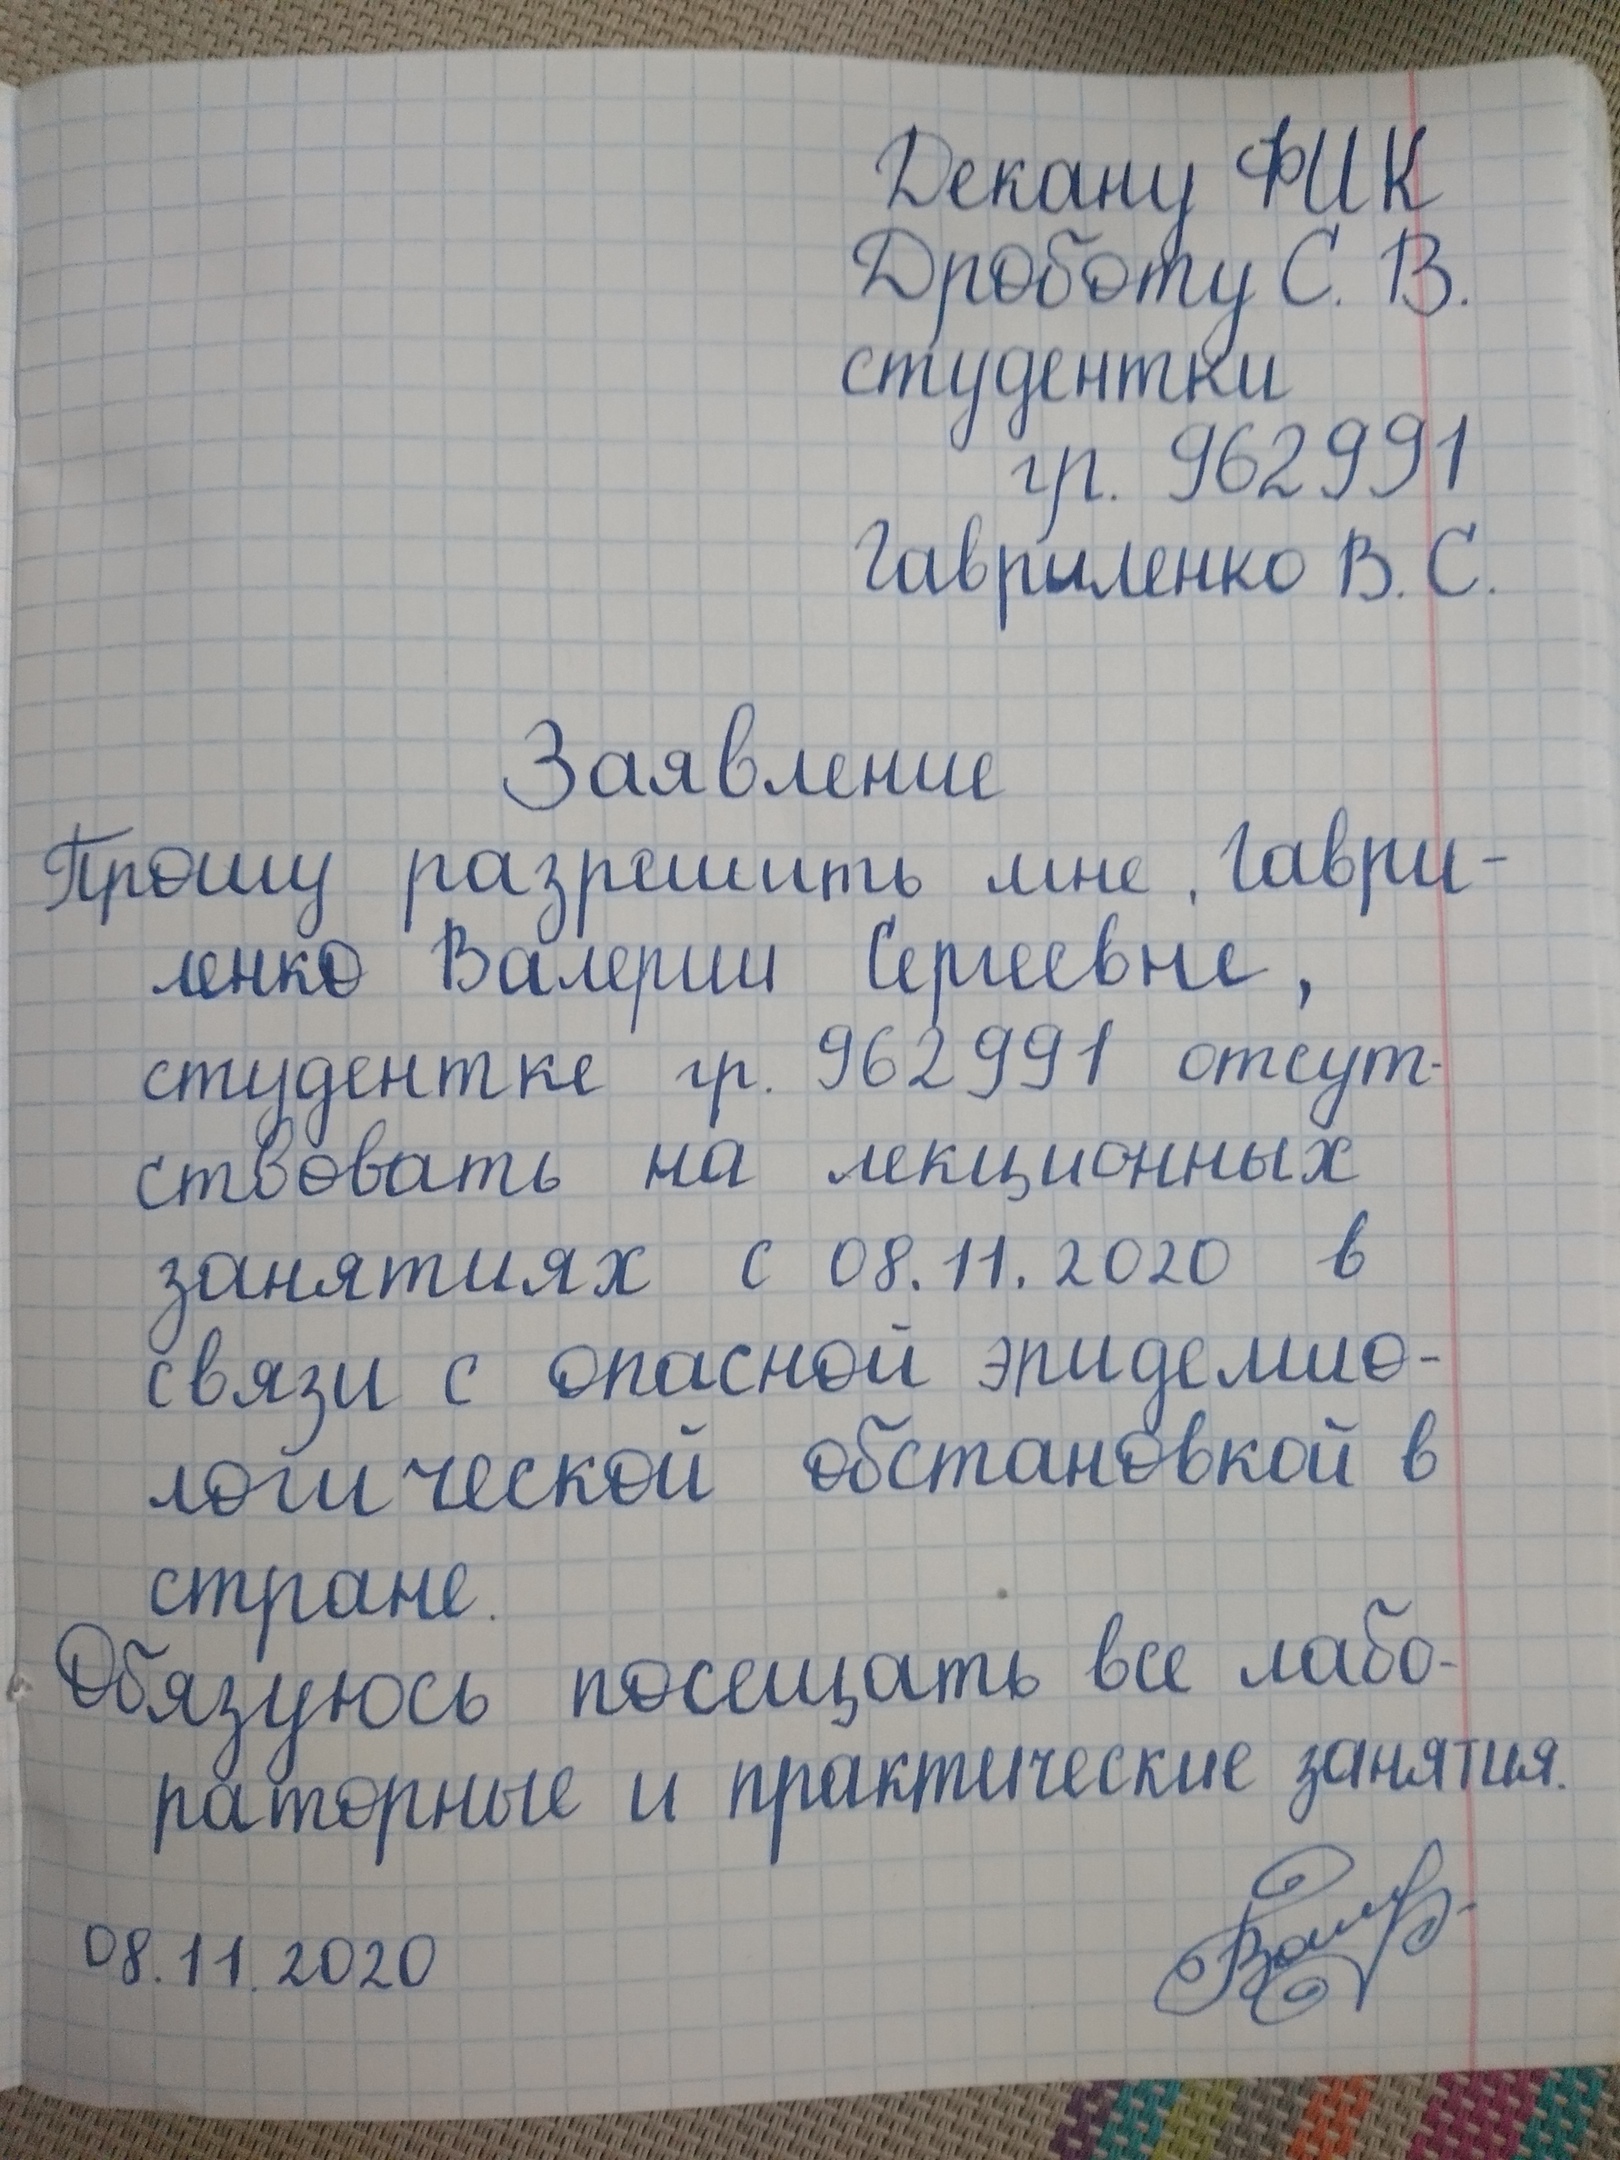 Декану ФИК
Дроботу С. В.
студентки
гр. 962991
Гавриленко В. С.
Заявление
Прошу разрешить мне, Гаври-
ленко Валерии Сергеевне,
студентке гр. 962991 отсут-
ствовать на лекционных
занятиях с 08.11.2020 в
связи с опасной эпидемио-
логической обстановкой в
стране.
Обязуюсь посещать все лабо-
раторные и практические занятия.
08.11.2020